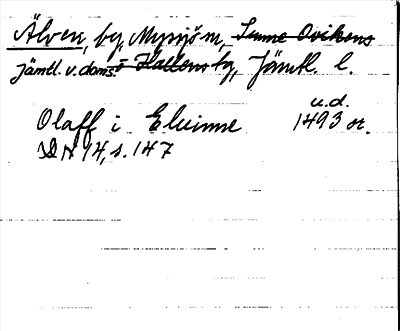 Älven, by, Myssjö sn, Sunne Ovikens
Jämtl. v. doms. i Hallens tg, Jämtl. l.
u.d.
Olaff i Eluinne 1493 or.
DN 14, s. 147